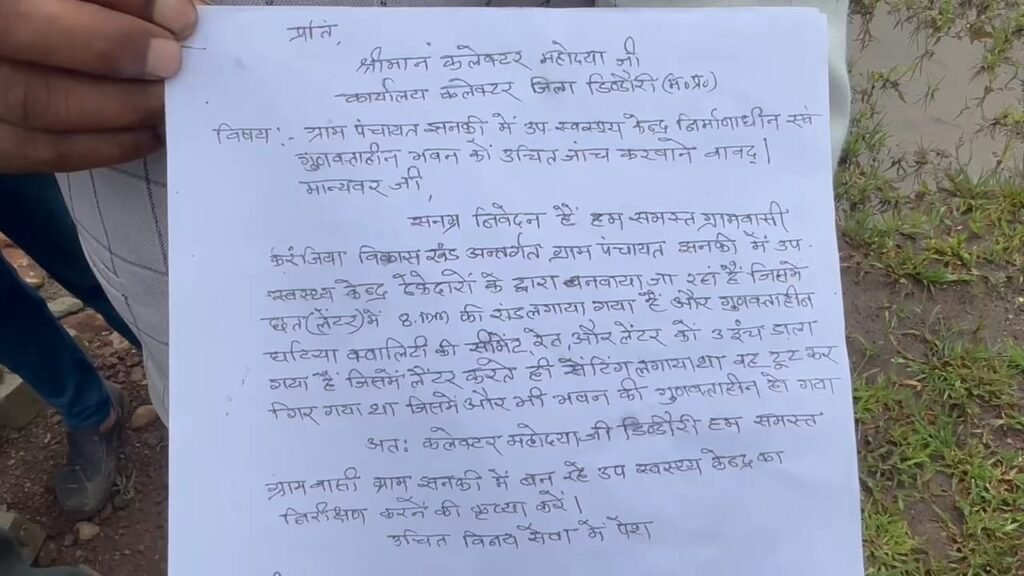 प्रति,
श्रीमान कलेक्टर महोदया जी
कार्यालय कलेक्टर जिला डिण्डौरी (म०प्र०)
विषय:- ग्राम पंचायत झनकी में उप स्वस्थ्य केन्द्र निर्माणाधीन एवं
गुणवत्ताहीन भवन को उचित जांच करवाने वावद्।
मान्यवर जी,
सनम्र निवेदन है हम समस्त ग्रामवासी
करंजिया विकास खंड अन्तर्गत ग्राम पंचायत झनकी में उप-
स्वस्थ्य केन्द्र ठेकेदारों के द्वारा बनवाया जा रहा है जिसमें
छत (लेंटर) में 8.mm की रांड लगाया गया है और गुणवत्ताहीन
घटिया क्वालिटी की सीमेंट, रेत, और लेंटर को 3 इंच डाला
गया है जिसमें लेंटर करते ही सेंटिंग लगाया था वह टूट कर
गिर गया था जिसमें और भी भवन की गुणवत्ताहीन हो गया
अतः कलेक्टर महोदया जी डिण्डौरी हम समस्त
ग्रामवासी ग्राम झनकी में बन रहे उप स्वस्थ्य केन्द्र का
निरीक्षण करने की कृप्या करें।
उचित विनय सेवा में पेश